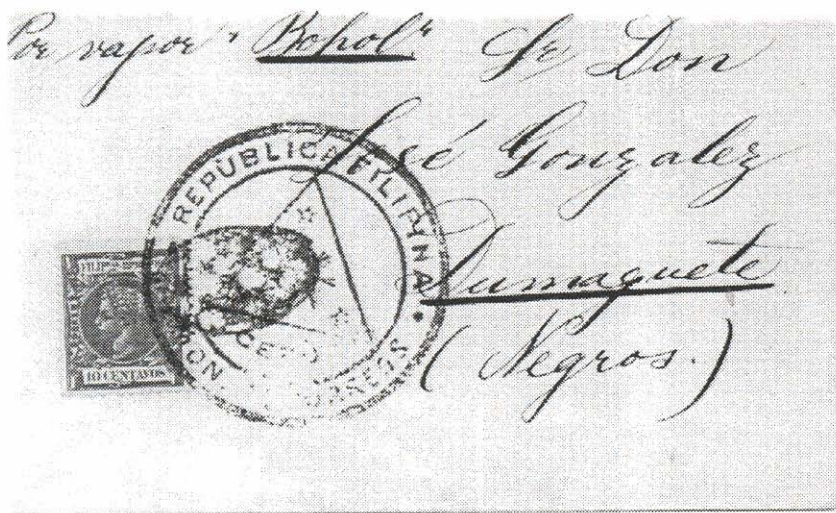 Por vapor "Bohol" Sr Don
José Gonzalez
Dumaguete
(Negros.)
REPUBLICA FILIPINA
CORREOS
CEBU
FILIP
10 CENTAVOS